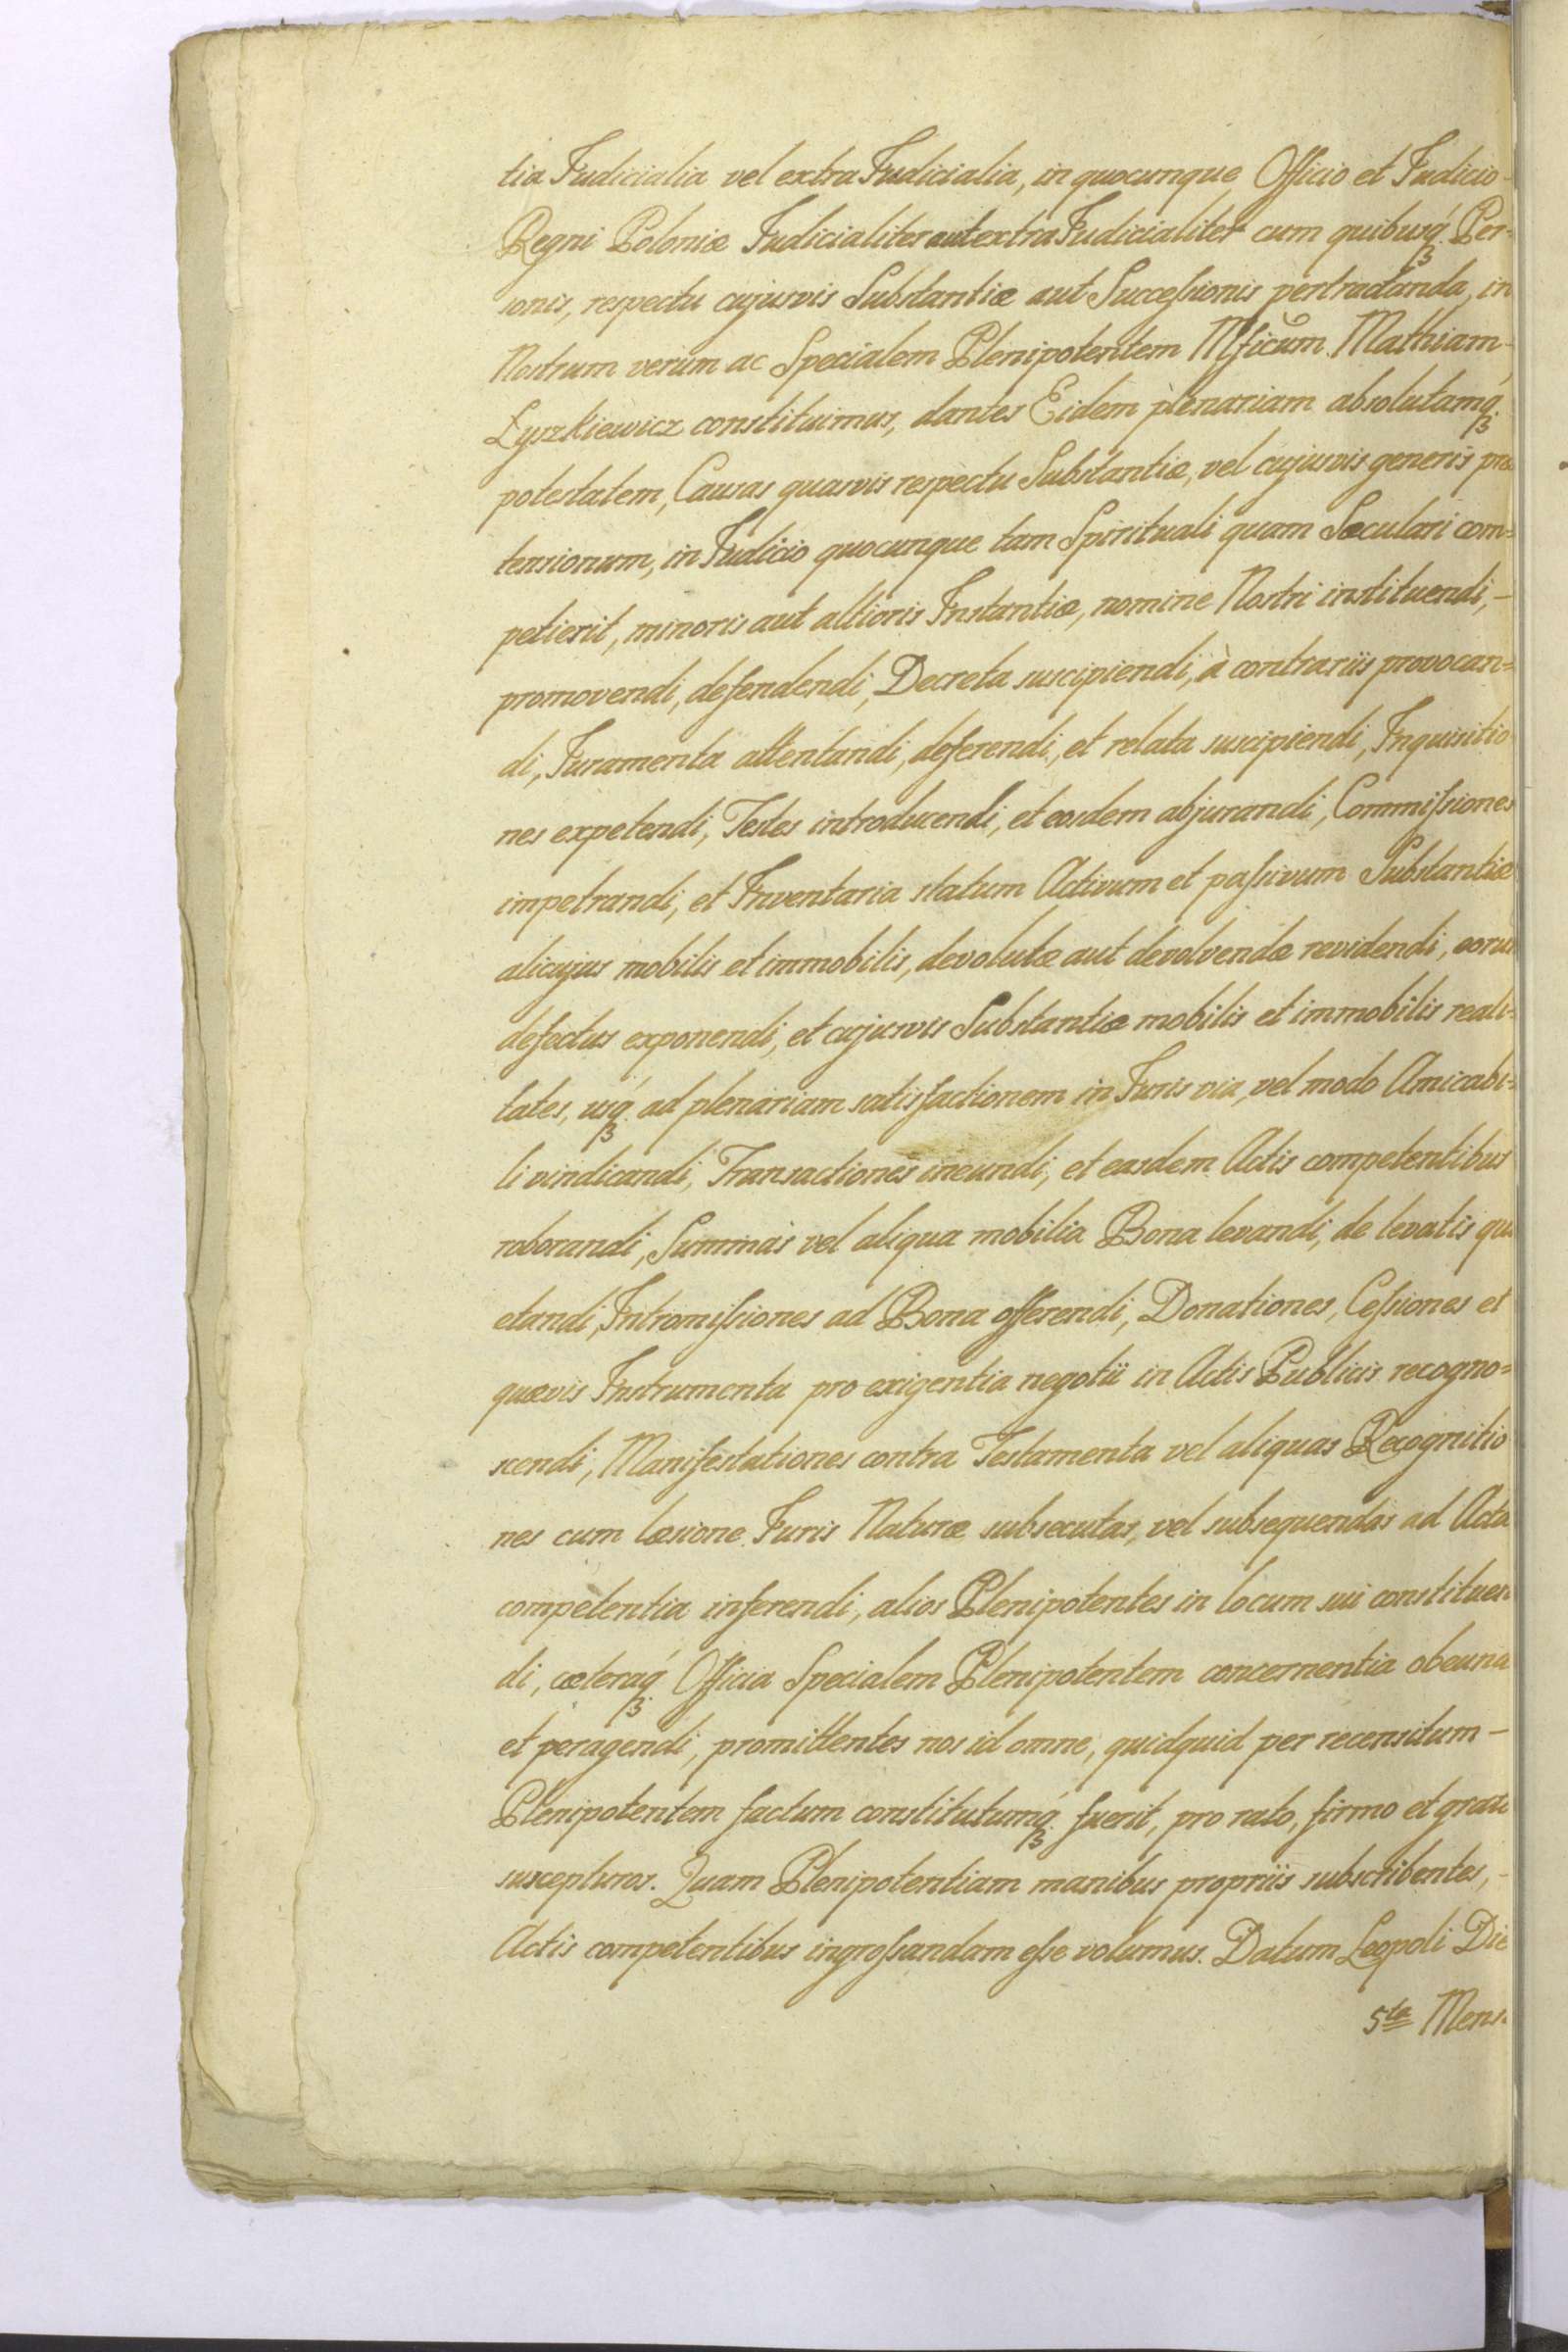 tia Judicialia vel extra Judicialia, in quocunque Officio et Judicio-
Regni Poloniæ Judicialiter aut extra Judicialiter cum quibusq́ꝫ. Per=
sonis, respectu cujusvis Substantiæ aut Succeſsionis pertractanda, in
Nostrum verum ac Specialem Plenipotentem Mficum Mathiam-
Lyszkiewicz constituimus, dantes Eidem plenariam absolutamq́ꝫ.
potestatem, Causas quasvis respectu Substantiæ, vel cujusvis generis præ
tensionum, in Judicio quocunque tam Spirituali quam Sæculari com=
petierit, minoris aut altioris Instantiæ, nomine Nostri instituendi,-
promovendi, defendendi, Decreta suscipiendi, à contrariis provocan=
di, Juramenta attentandi, deferendi, et relata suscipiendi, Inquisitio
nes expetendi, Testes introducendi, et eosdem abjurandi, Commiſsiones
impetrandi, et Inventaria statum Activum et paſsivum Substantiæ
alicujus mobilis et immobilis, devolutæ aut devolvendæ revidendi, eorum
defectus exponendi, et cujusvis Substantiæ mobilis et immobilis reali=
tates, usq́ꝫ. ad plenariam satisfactionem in Juris via, vel modo Amicabi=
li vindicandi, Transactiones ineundi, et easdem Actis competentibus
roborandi, Summas vel aliqua mobilia Bona levandi, de levatis qui
etandi, Intromiſsiones ad Bona offerendi, Donationes, Ceſsiones et
quævis Instrumenta pro exigentia negotii in Actis Publicis recogno=
scendi, Manifestationes contra Testamenta vel aliquas Recognitio
nes cum læsione Juris Naturæ subsecutas, vel subsequendas ad Acta
competentia inferendi, alios Plenipotentes in locum sui constituen
di, cæteraq́ꝫ. Officia Specialem Plenipotentem concernentia obeund
et peragendi, promittentes nos id omne, quidquid per recensitum-
Plenipotentem factum constitutumq́ꝫ. fuerit, pro rato, firmo et grato
suscepturos. Quam Plenipotentiam manibus propriis subscribentes,-
Actis competentibus ingroſsandam eſse volumus. Datum Leopoli Die
5ta Mens.